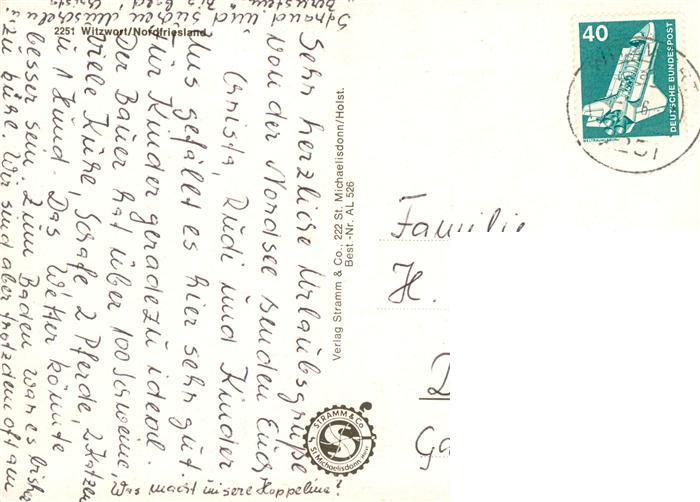 2251 Witzwort/Nordfriesland
Sehr herzliche Urlaubsgrüße
von der Nordsee senden Euch
Christa, Rudi und Kinder
Uns gefällt es hier sehr gut.
Für Kinder geradezu ideal.
Der Bauer hat über 100 Schweine,
viele Kühe, Schafe 2 Pferde, 2 Katzen
u 1 Hund. Das Wetter könnte
besser sein. Zum Baden war es bisher
zu kühl. Wir sind aber trotzdem oft am
Strand und suchen Muscheln u.
"Bernstein"
Was macht unsere Hoppeline?
Verlag Stramm & Co., 222 St. Michaelisdonn/Holst.
Best.-Nr. AL 526
STRAMM & Co.
St. Michaelisdonn
40
DEUTSCHE BUNDESPOST
2251
Familie
H.
D
Ga